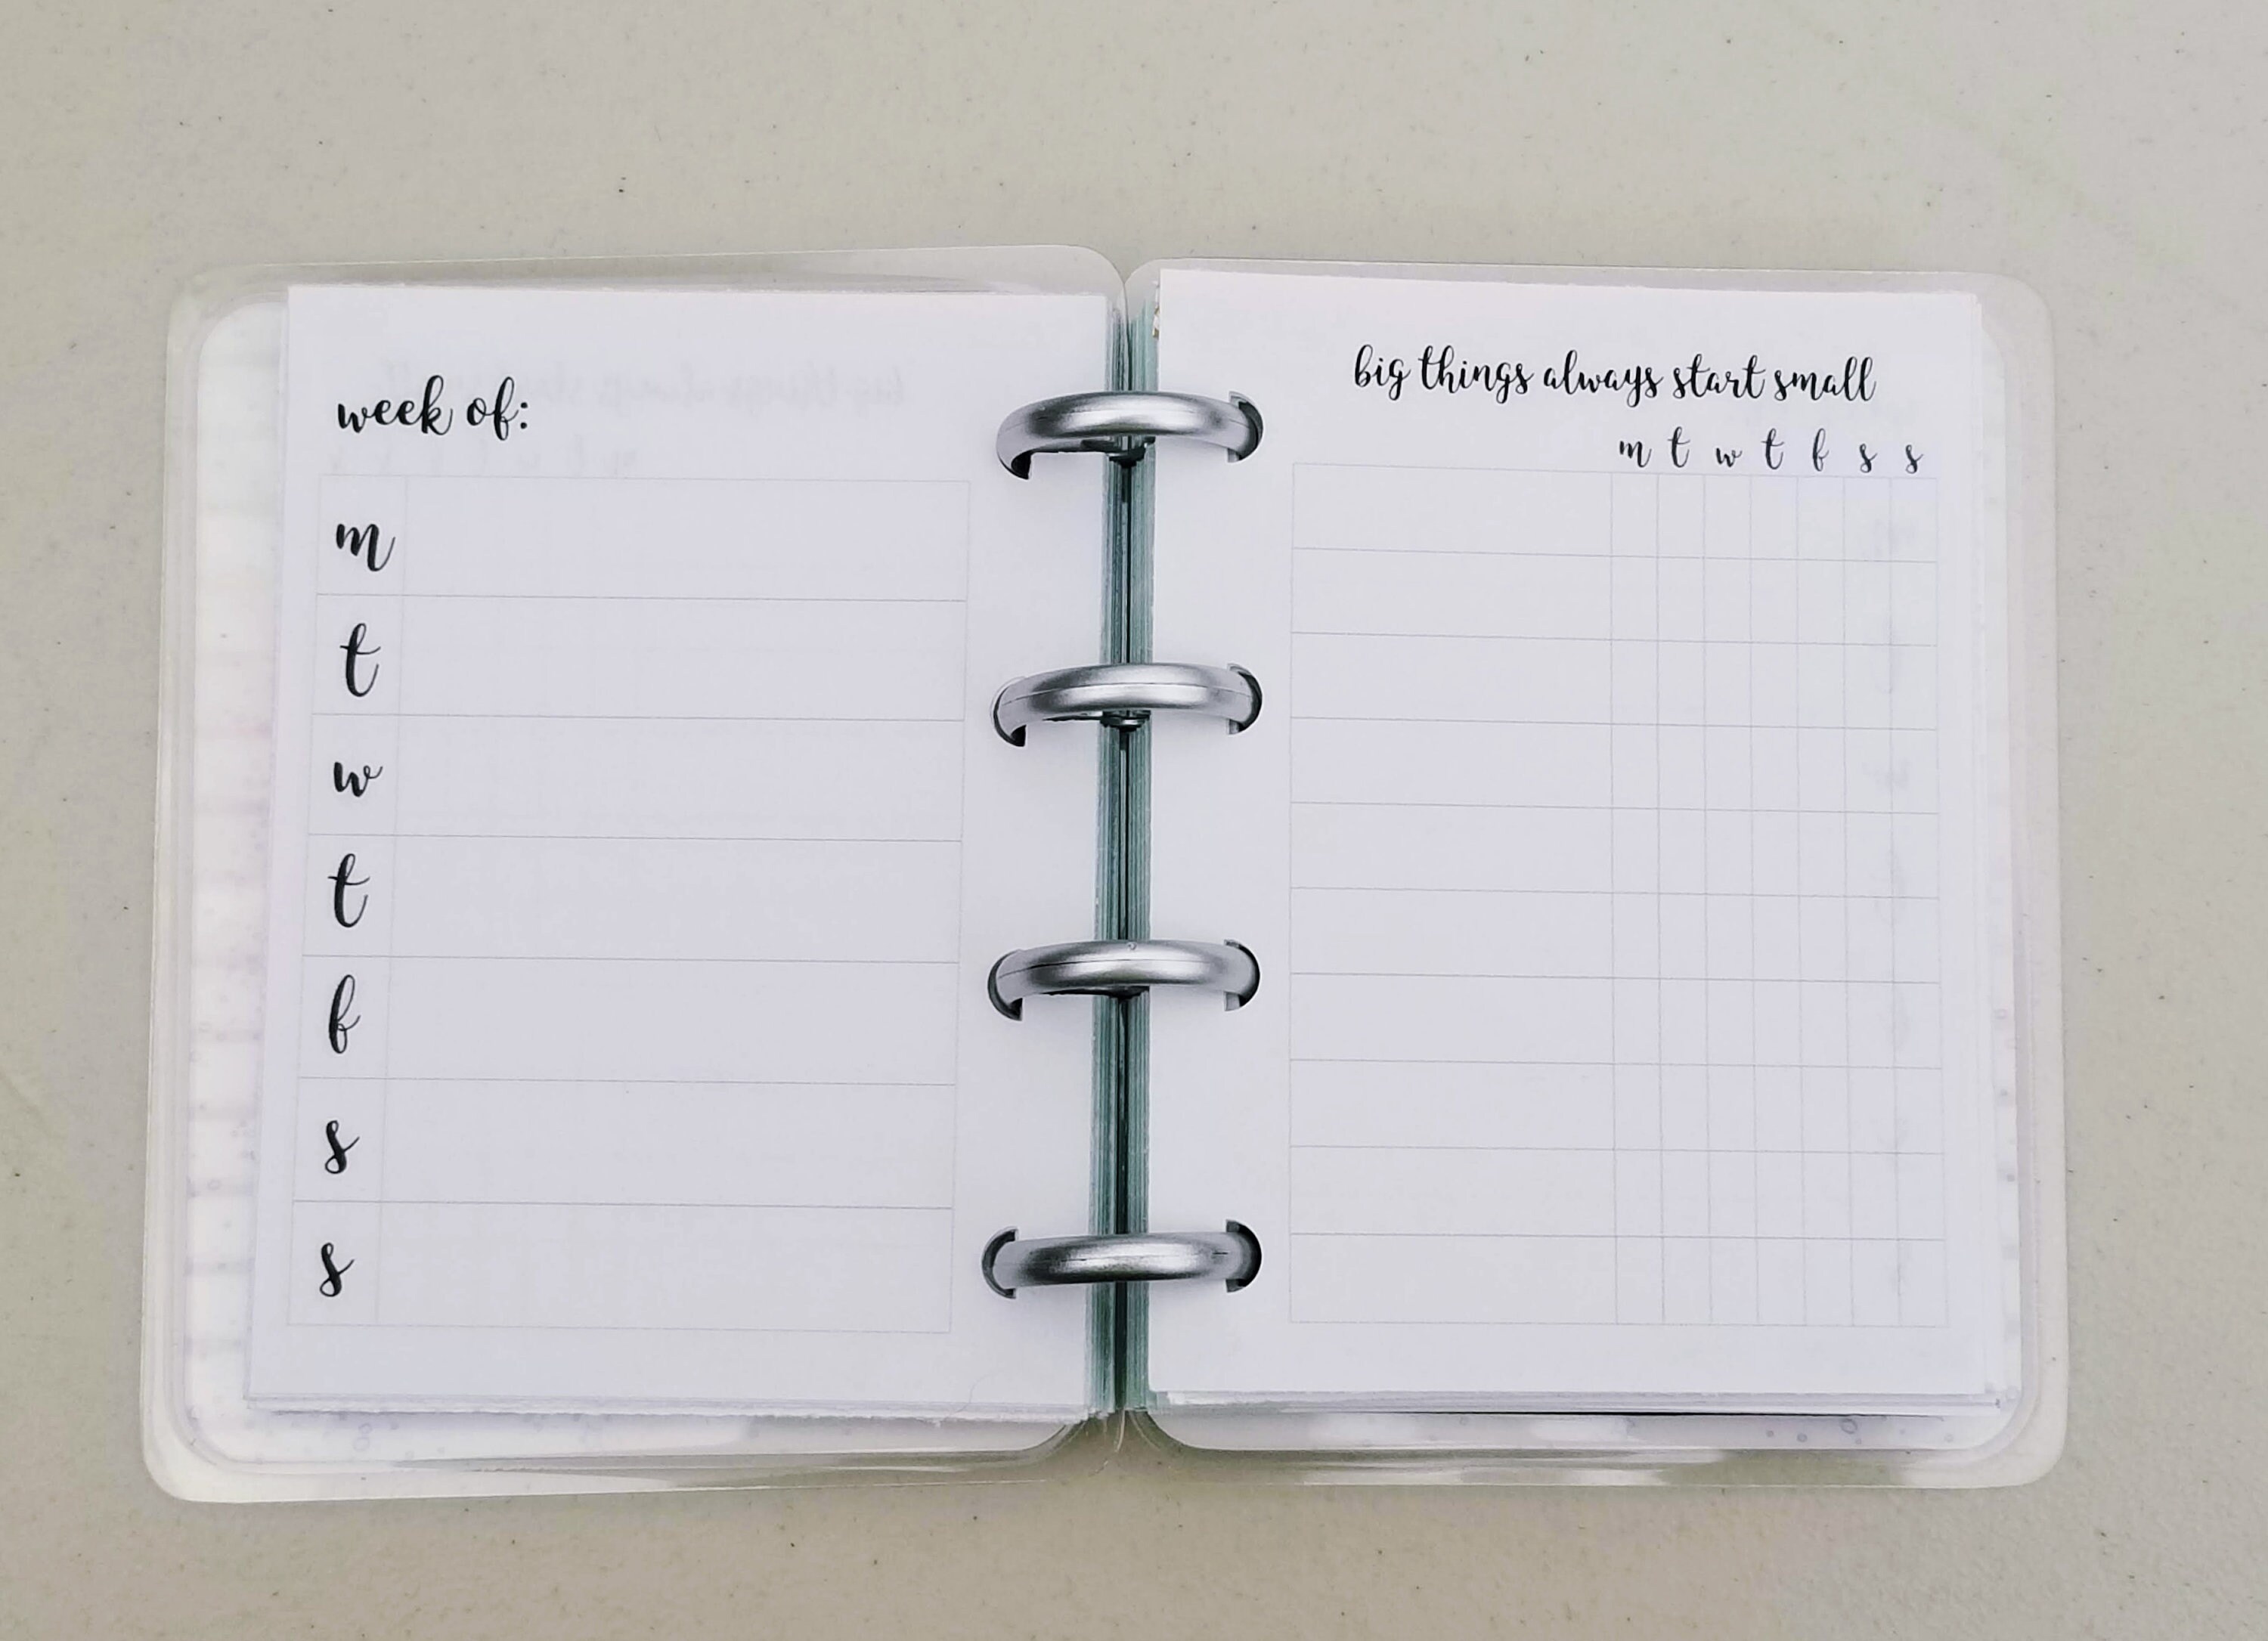 week of:
m
t
w
t
f
s
s
big things always start small
m t w t f s s